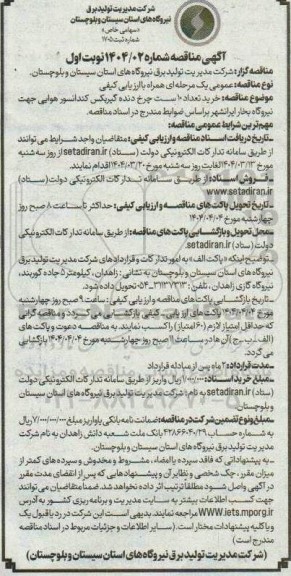 شرکت مدیریت تولید برق
نیروگاه های استان سیستان و بلوچستان
«سهامی خاص»
شماره ثبت ۱۷۰۵
آگهی مناقصه شماره ۱۴۰۴/۰۲ نوبت اول
مناقصه گزار: شرکت مدیریت تولید برق نیروگاه های استان سیستان و بلوچستان.
نوع مناقصه: عمومی یک مرحله ای همراه با ارزیابی کیفی
موضوع مناقصه: خرید تعداد ۱۰ ست چرخ دنده گیربکس کندانسور هوایی جهت
نیروگاه بخار ایرانشهر براساس ضوابط مندرج در اسناد مناقصه.
مهم ترین شرایط عمومی مناقصه:
ـ تاریخ دریافت اسناد مناقصه و ارزیابی کیفی: متقاضیان واجد شرایط می توانند
از طریق سامانه تدارکات الکترونیکی دولت (ستاد) setadiran.ir از روز سه شنبه
مورخ ۱۴۰۴/۰۳/۱۳ لغایت روز سه شنبه مورخ ۱۴۰۴/۰۳/۲۰ اقدام نمایند.
ـ فروش اسناد: از طریق سامانه تدارکات الکترونیکی دولت (ستاد)
www.setadiran.ir
ـ تاریخ تحویل پاکت های مناقصه و ارزیابی کیفی: حداکثر تا ساعت ۸ صبح روز
چهارشنبه مورخ ۱۴۰۴/۰۴/۰۴
ـ محل تحویل و بازگشایی پاکت های مناقصه: از طریق سامانه تدارکات الکترونیکی
دولت (ستاد) setadiran.ir.
توضیح اینکه «پاکت الف» به امور تدارکات و قراردادهای شرکت مدیریت تولید برق
نیروگاه های استان سیستان و بلوچستان به نشانی: زاهدان، کیلومتر ۵ جاده گوربند،
نیروگاه گازی زاهدان، تلفن: ۳۱۱۳۷۳۱۳-۰۵۴ تحویل داده شود.
ـ تاریخ بازگشایی پاکت های مناقصه و ارزیابی کیفی: ساعت ۹ صبح روز چهارشنبه
مورخ ۱۴۰۴/۰۴/۰۴ پاکت های ارزیابی کیفی بازگشایی می گردد و مناقصه گرانی
که حداقل امتیاز لازم (۶۰ امتیاز) را کسب نمایند، به مناقصه دعوت و پاکت های
(الف، ب، ج) آن ها در ساعت ۱۱ صبح روز چهارشنبه مورخ ۱۴۰۴/۰۴/۰۴ بازگشایی
می گردد.
ـ مدت قرارداد: ۲ ماه پس از مبادله قرارداد
ـ مبلغ خرید اسناد: ۱/۰۰۰/۰۰۰ ریال واریز از طریق سامانه تدارکات الکترونیکی دولت
(ستاد) setadiran.ir به نام: شرکت مدیریت تولید برق نیروگاه های استان سیستان
و بلوچستان.
ـ مبلغ و نوع تضمین شرکت در مناقصه: ضمانت نامه بانکی یا واریز مبلغ ۷/۰۰۰/۰۰۰/۰۰۰ ریال
به شماره حساب بانک ملت شعبه دانش زاهدان به نام شرکت
مدیریت تولید برق نیروگاه های استان سیستان و بلوچستان.
ـ به پیشنهاداتی که فاقد سپرده یا امضاء، مشروط و مخدوش و سپرده های کمتر از
میزان مقرر، چک شخصی و نظایر آن و پیشنهادهایی که پس از انقضای مدت مقرر
در آگهی واصل شود مطلقاً ترتیب اثر داده نخواهد شد. ضمناً متقاضیان می توانند
جهت کسب اطلاعات بیشتر به سایت مدیریت و برنامه ریزی کشور به آدرس
WWW.iets.mporg.ir مراجعه نمایند. بدیهی است این شرکت در رد یا قبول یک
و یا کلیه پیشنهادات مختار است. (سایر اطلاعات و جزئیات مربوط در اسناد مناقصه
مندرج است)
(شرکت مدیریت تولید برق نیروگاه های استان سیستان و بلوچستان)